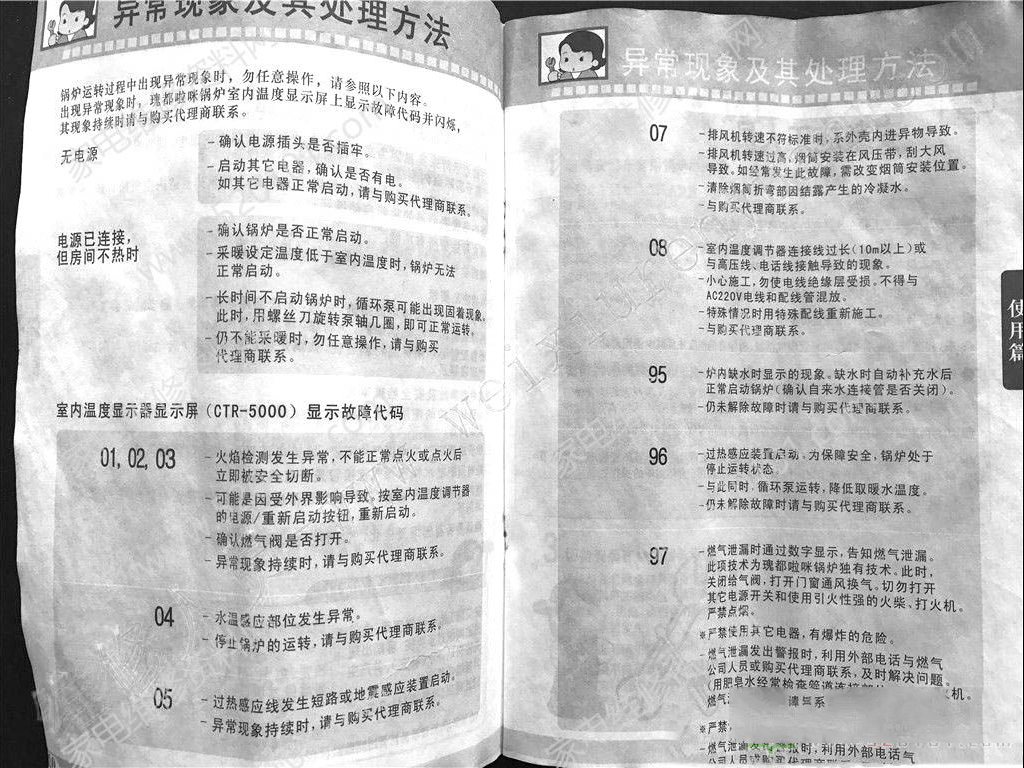 异常现象及其处理方法
锅炉运转过程中出现异常现象时，勿任意操作，请参照以下内容。
出现异常现象时，瑰都啦咪锅炉室内温度显示屏上显示故障代码并闪烁，
其现象持续时请与购买代理商联系。
无电源
-确认电源插头是否插牢。
-启动其它电器，确认是否有电。
如其它电器正常启动，请与购买代理商联系。
电源已连接，
但房间不热时
-确认锅炉是否正常启动。
-采暖设定温度低于室内温度时，锅炉无法
正常启动。
-长时间不启动锅炉时，循环泵可能出现固着现象。
此时，用螺丝刀旋转泵轴几圈，即可正常运转。
-仍不能采暖时，勿任意操作，请与购买
代理商联系。
室内温度显示器显示屏（CTR-5000）显示故障代码
01, 02, 03
-火焰检测发生异常，不能正常点火或点火后
立即被安全切断。
-可能是因受外界影响导致，按室内温度调节器
的电源/重新启动按钮，重新启动。
-确认燃气阀是否打开。
-异常现象持续时，请与购买代理商联系。
04
-水温感应部位发生异常。
-停止锅炉的运转，请与购买代理商联系。
05
-过热感应线发生短路或地震感应装置启动。
-异常现象持续时，请与购买代理商联系。
异常现象及其处理方法
07
-排风机转速不符标准时，系外壳内进异物导致。
-排风机转速过高，烟筒安装在风压带，刮大风
导致。如经常发生此故障，需改变烟筒安装位置。
-清除烟筒折弯部因结露产生的冷凝水。
-与购买代理商联系。
08
-室内温度调节器连接线过长（10m以上）或
与高压线、电话线接触导致的现象。
-小心施工，勿使电线绝缘层受损。不得与
AC220V电线和配线管混放。
-特殊情况时用特殊配线重新施工。
-与购买代理商联系。
95
-炉内缺水时显示的现象。缺水时自动补充水后
正常启动锅炉（确认自来水连接管是否关闭）。
-仍未解除故障时请与购买代理商联系。
96
-过热感应装置启动。为保障安全，锅炉处于
停止运转状态。
-与此同时，循环泵运转，降低取暖水温度。
-仍未解除故障时请与购买代理商联系。
97
-燃气泄漏时通过数字显示，告知燃气泄漏。
此项技术为瑰都啦咪锅炉独有技术。此时，
关闭给气阀，打开门窗通风换气。切勿打开
其它电源开关和使用引火性强的火柴、打火机。
严禁点烟。
※严禁使用其它电器，有爆炸的危险。
-燃气泄漏发出警报时，利用外部电话与燃气
公司人员或购买代理商联系，及时解决问题。
(用肥皂水经常检查管道连接部
火机。
燃气
※严禁
-燃气泄
报时，利用外部电话与燃气
使用篇